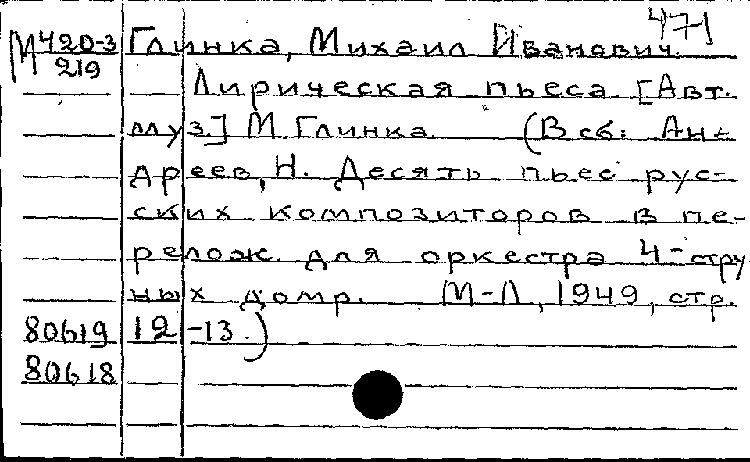 471
М 420-3 Глинка, Михаил Иванович.
219
Лирическая пьеса [Авт.
муз.] М. Глинка (В сб: Ан-
дреев, Н. Десять пьес рус-
ских композиторов в пе-
релож. для оркестра 4-стру
нных домр. М-Л, 1949, стр.
80619 12-13.)
80618